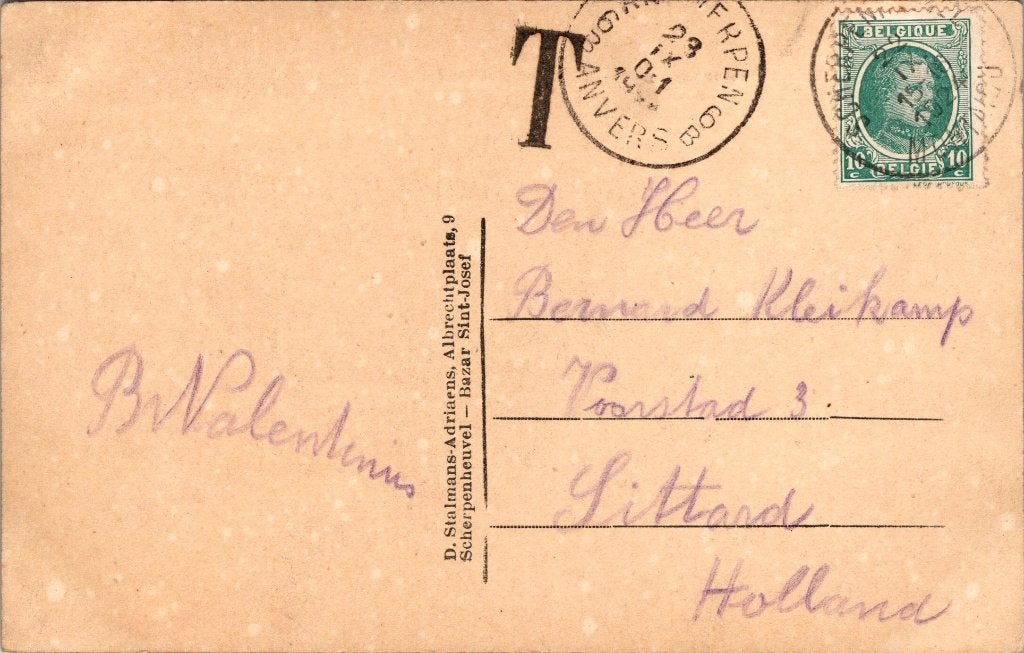 T
ANTWERPEN 6B
6B ANVERS
23
IX
BELGIQUE
10 c
10 c
BELGIE
IX
15
Den Heer
Bernard Kleikamp
Voorstad 3.
Sittard
Holland
Br Valentinus
D. Stalmans-Adriaens, Albrechtplaats, 9
Scherpenheuvel — Bazar Sint-Josef